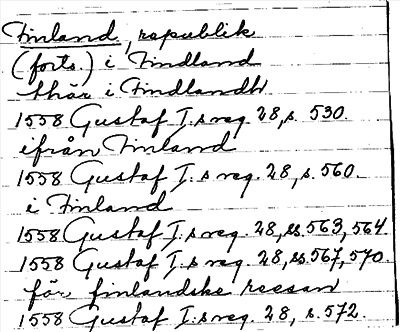 Finland, republik
(forts.) i Findland
thär i Findlandh
1558 Gustaf I:s reg. 28, s. 530.
ifrån Finland
1558 Gustaf I:s reg. 28, s. 560.
i Finland
1558 Gustaf I:s reg. 28, ss. 563, 564.
1558 Gustaf I:s reg. 28, ss. 567, 570.
för finlandske reesan
1558 Gustaf I:s reg. 28, s. 572.